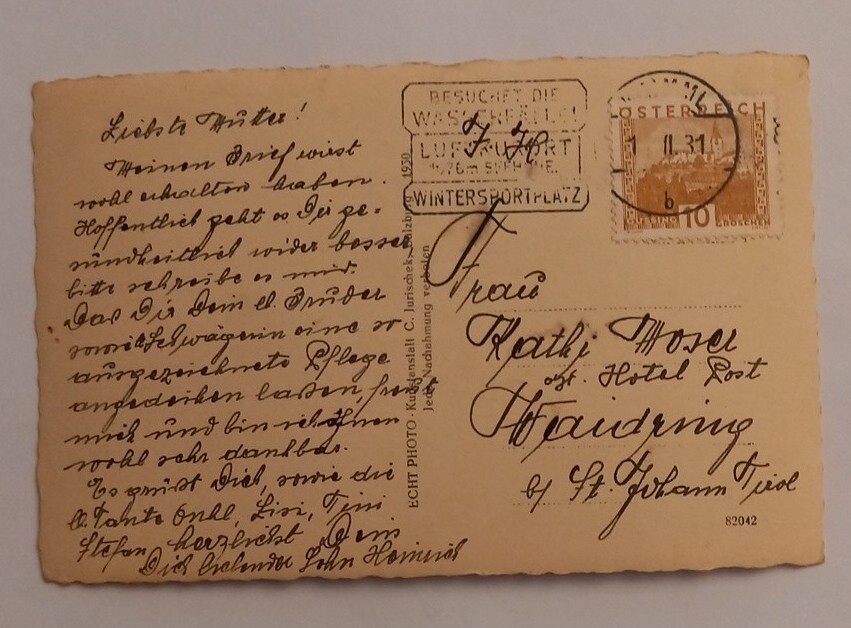 Liebste Mutter!
Meinen Brief wirst
wohl erhalten haben.
Hoffentlich geht es Dir ge-
sundheitlich wider besser
bitte schreibe es mir.
Das Dir Dein lb. Bruder
sowie Schwägerin eine so
ausgezeichnete Pflege
angedeihen lassen, freut
mich und bin ich Ihnen
wohl sehr dankbar.
Es grüßt Dich, sowie die
lb. Tante Onkl, Lisi, Tini
Stefan herzlichst Dein
Dich liebender Sohn Heinrich
ECHT PHOTO · Kunstanstalt C. Jurischek, Salzburg 1930
Jede Nachahmung verboten
BESUCHET DIE
WASSERFÄLLE!
LUFTKURORT
1076m SEEHÖHE.
WINTERSPORTPLATZ
ÖSTERREICH
1 II.31
b
10
GROSCHEN
Frau
Kathi Moser
Hotel Post
Waidring
b/ St. Johann Tirol
82042